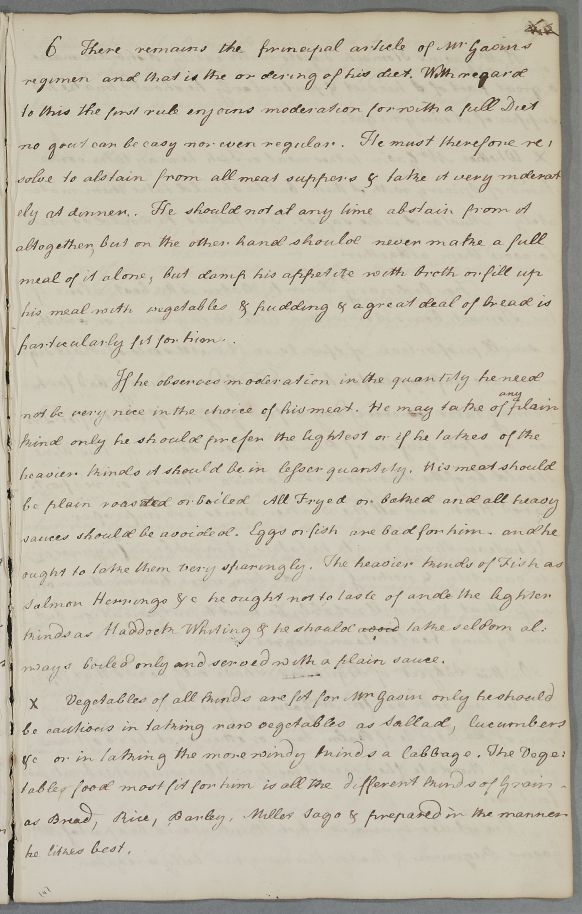 6 There remains the principal article of Mr Gavin's
regimen and that is the ordering of his diet. With regard
to this the first rule enjoins moderation for with a full Diet
no gout can be easy nor even regular. He must therefore re,
solve to abstain from all meat suppers & take it very moderat
ely at dinner. He should not at any time abstain from it
altogether, but on the other hand should never make a full
meal of it alone, but damp his appetite with broth or fill up
his meal with vegetables & pudding & a great deal of bread is
particularly fit for him.
If he observes moderation in the quantity he need
not be very nice in the choice of his meat. He may take of any plain
kind only he should prefer the lightest or if he takes of the
heavier kinds it should be in lesser quantity. His meat should
be plain roasted or boiled All Fryed or baked and all heavy
sauces should be avoided. Eggs or fish are bad for him. and he
ought to take them very sparingly. The heavier kinds of Fish as
Salmon Herrings &c he ought not to taste of and the lighter
kinds as Haddock Whiting & he should avoid take seldom al:
ways boiled only and served with a plain sauce.
x Vegetables of all kinds are fit for Mr Gavin only he should
be cautious in taking raw vegetables as Sallad, Cucumbers
&c or in taking the more windy kinds a Cabbage. The Vege:
tables food most fit for him is all the different kinds of Grain
as Bread, Rice, Barley, Millet Sago & prepared in the manner
he likes best.